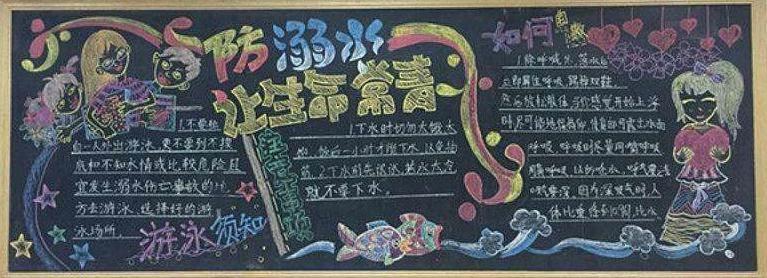 防溺水
让生命常青
1.不要独
自一人外出游泳,更不要到不摸
底和不知水情或比较危险且
宜发生溺水伤亡事故的地
方去游泳.选择好的游
泳场所.
游泳须知
注意事项
1.下水时切勿太饿太
饱.饭后一小时才能下水.以免抽
筋.2.下水前先试试.若水太冷
就不要下水.
如何自救
1.除呼喊外.落水后
立即屏住呼吸.踢掉双鞋.
然后放松肢体.当你感觉开始上浮
时.尽可能地保持仰位.使
呼吸.呼吸时尽量用嘴
体比重